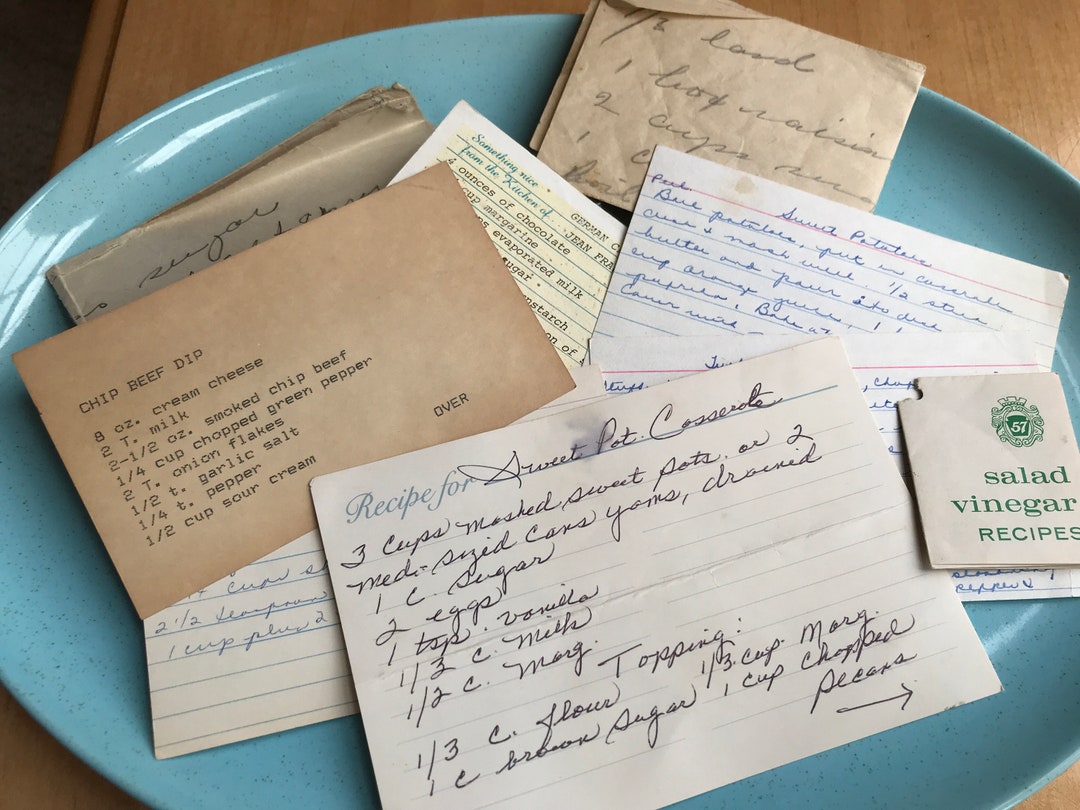 1/3 lard
1 box raisin
2 cups
1 c
sugar
Something nice
from the Kitchen of
GERMAN C
JEAN FRA
4 ounces of chocolate
cup margarine
evaporated milk
sugar
nstarch
on of
Peel
Sweet Potatoes
Bake potatoes, put in casserole
& mash well. 1/2 stick
butter and pour into dish
cup orange juice, 1
paprika! Bake at
Cover with
CHIP BEEF DIP
8 oz. cream cheese
2 T. milk
2-1/2 oz. smoked chip beef
1/4 cup chopped green pepper
2 T. onion flakes
1/2 t. garlic salt
1/4 t. pepper
1/2 cup sour cream
OVER
cup s
2 1/2 teaspoon
1 cup plus 2
Recipe for Sweet Pot. Casserole
3 cups mashed sweet pots. or 2
med-sized cans yams, drained
1 c. sugar
2 eggs
1 tsp. vanilla
1/3 c. milk
1/2 c. marg.
Topping:
1/3 c. flour 1/3 cup marg.
1 c brown sugar 1 cup chopped
pecans
57
salad
vinegar
RECIPES